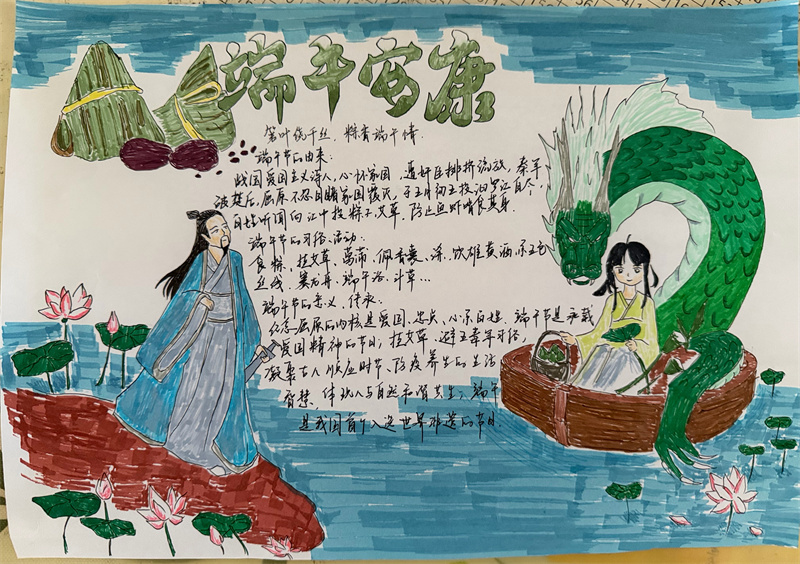 端午安康
箬叶绕千丝、粽香端午情.
端午节的由来:
战国爱国主义诗人,心怀家国,遭奸臣排挤流放,秦军
破楚后,屈原不忍目睹家国覆灭,于五月初五投汨罗江自尽,
百姓听闻向江中投粽子、艾草,防止鱼虾啃食其身.
端午节的习俗、活动:
食粽、挂艾草、菖蒲、佩香囊、饮雄黄酒、系五色
丝线、赛龙舟、端午浴、斗草...
端午节的意义、传承:
纪念屈原的内核是爱国、忠贞、心系百姓,端午节是承载
爱国精神的节日,挂艾草、避五毒等习俗,
凝聚古人顺应时节、防疫养生的生活
智慧,体现人与自然和谐共生,端午
是我国首个入选世界非遗的节日